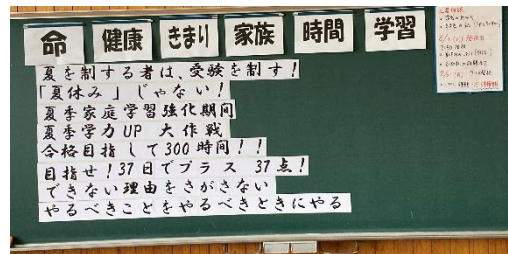 命 健康 きまり 家族 時間 学習
夏を制する者は、受験を制す!
「夏休み」じゃない!
夏季家庭学習強化期間
夏季学力UP 大作戦
合格目指して300時間!!
目指せ!37日でプラス 37点!
できない理由をさがさない
やるべきことをやるべきときにやる